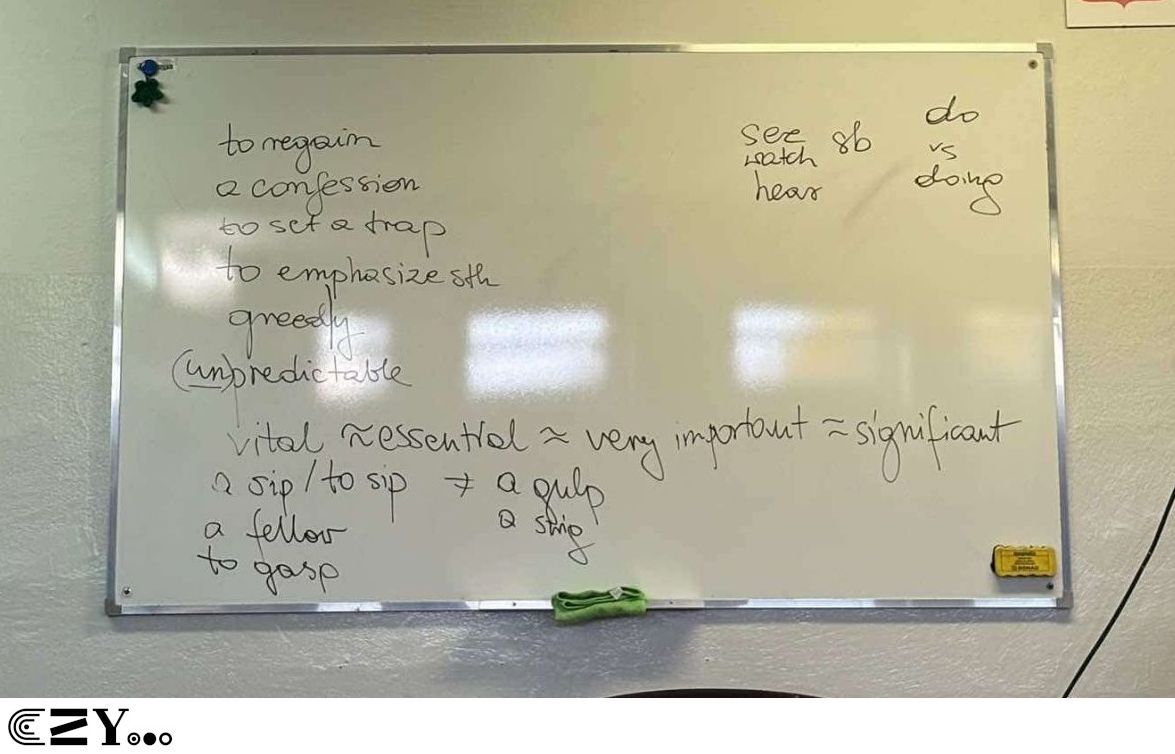 to regain
a confession
to set a trap
to emphasize sth
greedly
(un)predictable
vital ≈ essential ≈ very important ≈ significant
a sip / to sip ≠ a gulp
a fellow
a
to gasp
see
watch sb
hear
do
vs
doing
CZY...